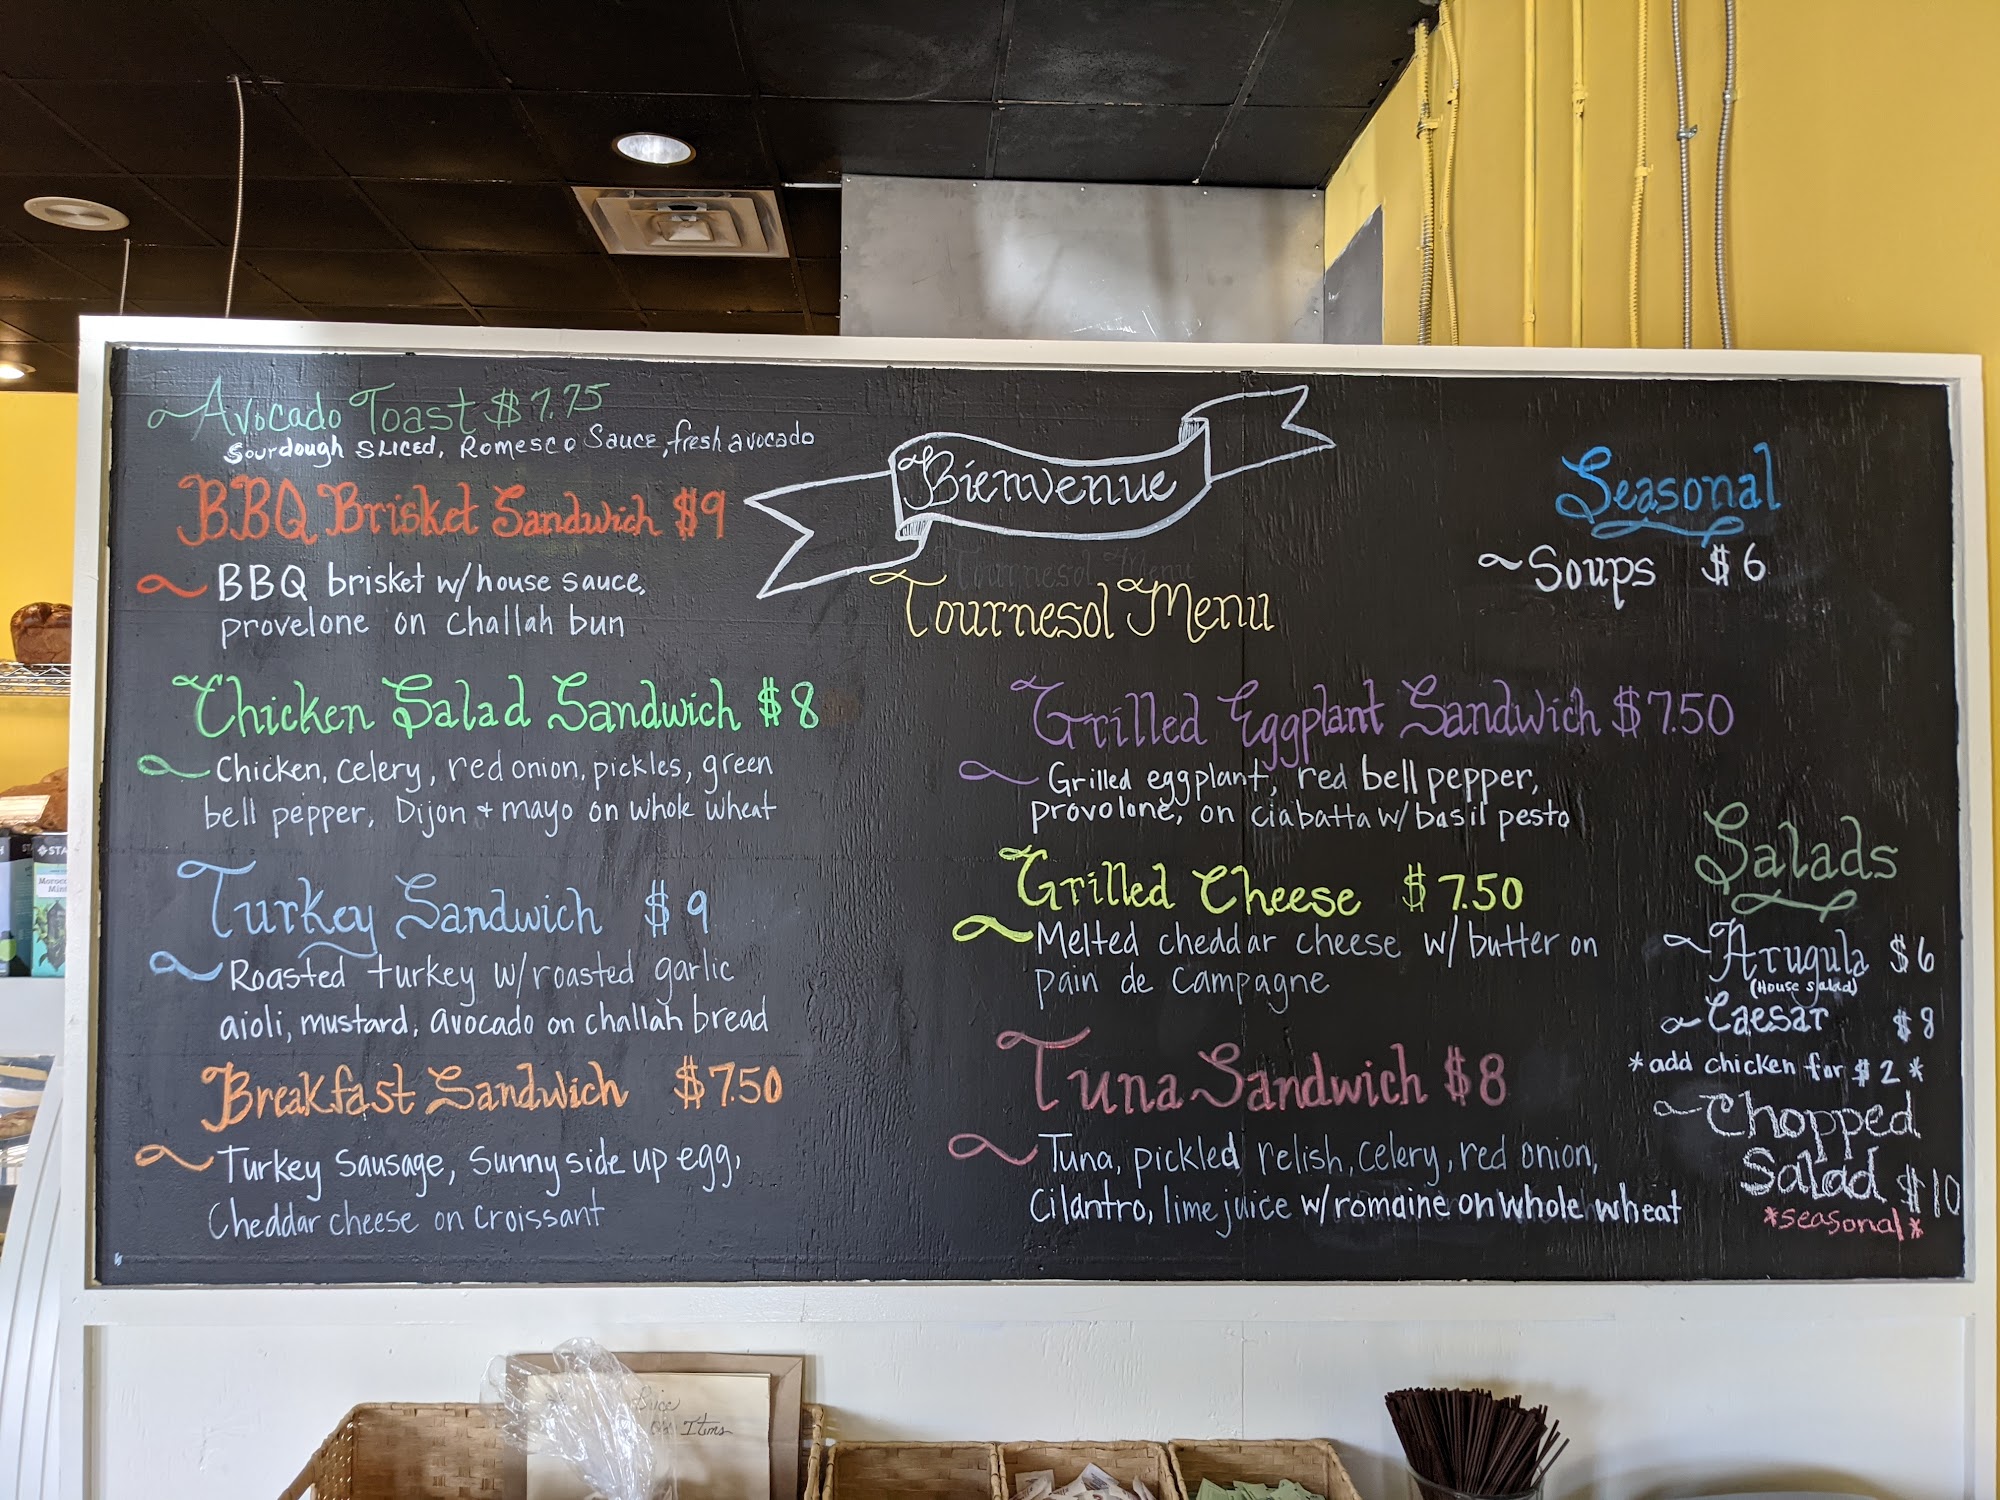 Avocado Toast $7.75
Sourdough Sliced, Romesco Sauce, fresh avocado
BBQ Brisket Sandwich $9
BBQ brisket w/house sauce,
provelone on challah bun
Chicken Salad Sandwich $8
Chicken, celery, red onion, pickles, green
bell pepper, Dijon + mayo on whole wheat
Turkey Sandwich $9
Roasted turkey w/roasted garlic
aioli, mustard, avocado on challah bread
Breakfast Sandwich $7.50
Turkey Sausage, Sunny side up egg,
Cheddar cheese on croissant
Bienvenue
Tournesol Menu
Tournesol Menu
Grilled Eggplant Sandwich $7.50
Grilled eggplant, red bell pepper,
provolone, on ciabatta w/basil pesto
Grilled Cheese $7.50
Melted cheddar cheese w/butter on
pain de Campagne
Tuna Sandwich $8
Tuna, pickled relish, celery, red onion,
Cilantro, lime juice w/romaine on whole wheat
Seasonal
Soups $6
Salads
Arugula $6
(House salad)
Caesar $8
*add chicken for $2*
Chopped
Salad $10
*seasonal*
Moroccan
Mint
Price
Items